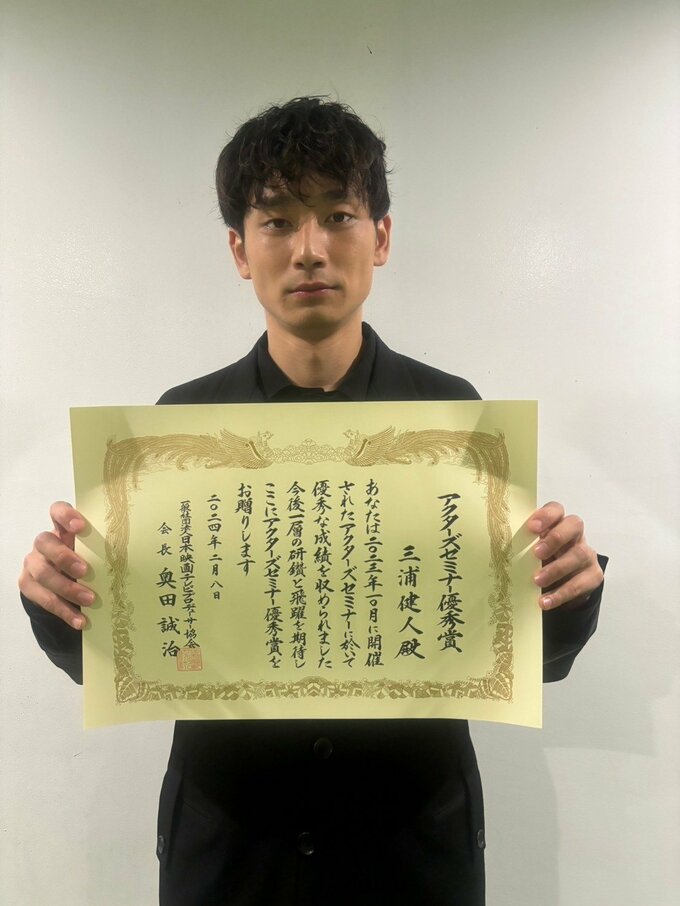 アクターズゼミナー優秀賞
三浦健人殿
あなたは二〇二三年一〇月に開催
されたアクターズセミナーに於いて
優秀な成績を収められました
今後一層の研鑽と飛躍を期待し
ここにアクターズゼミナー優秀賞を
お贈りします
二〇二四年二月八日
一般社団法人日本映画テレビプロデューサー協会
会長 奥田誠治